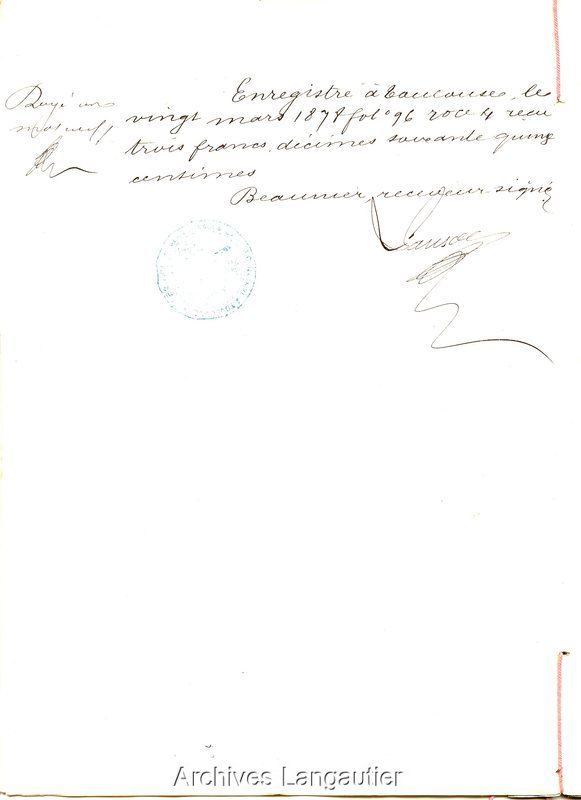 Rayé un
mot nul
Enregistré à Toulouse, le
vingt mars 187 fol° 96 r° c 4 reçu
trois francs, décimes soixante quinze
centimes
Beaumier, receveur signé
Archives Langautier